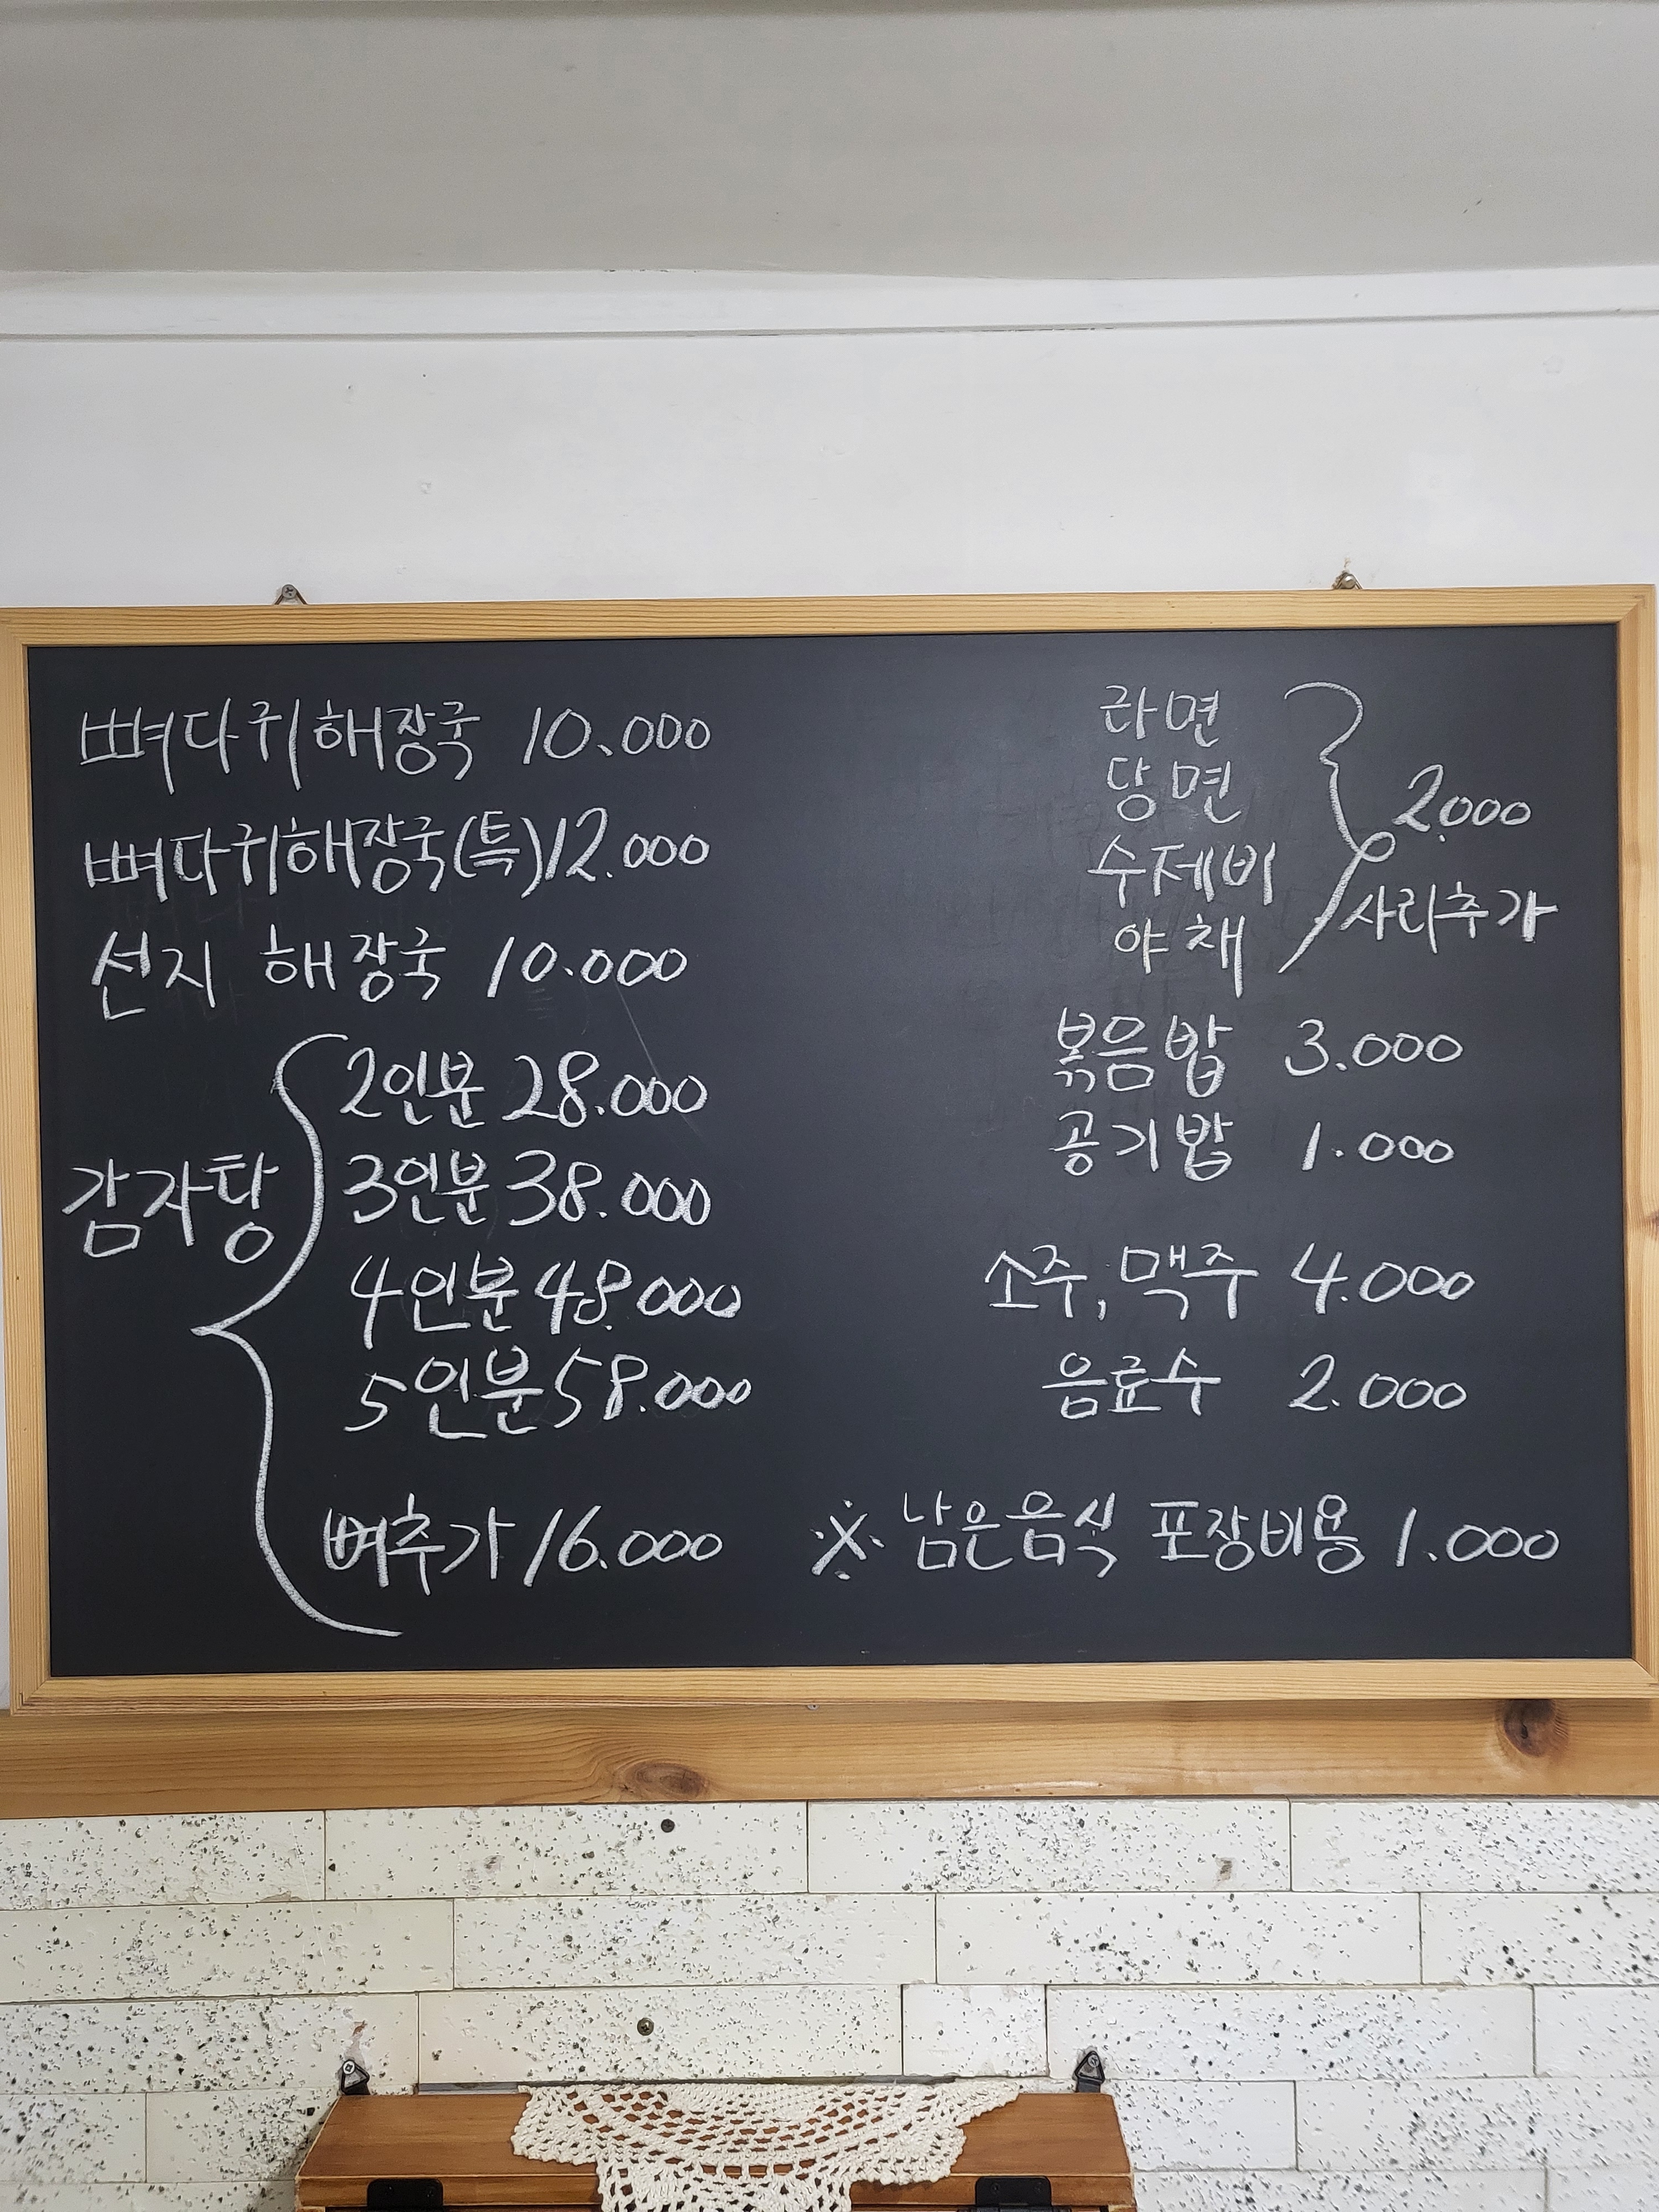 뼈다귀해장국 10.000
뼈다귀해장국(특) 12.000
선지 해장국 10.000
감자탕
2인분 28.000
3인분 38.000
4인분 48.000
5인분 58.000
뼈추가 16.000
라면
당면
수제비
야채
2.000
사리추가
볶음밥 3.000
공기밥 1.000
소주, 맥주 4.000
음료수 2.000
※ 남은음식 포장비용 1.000